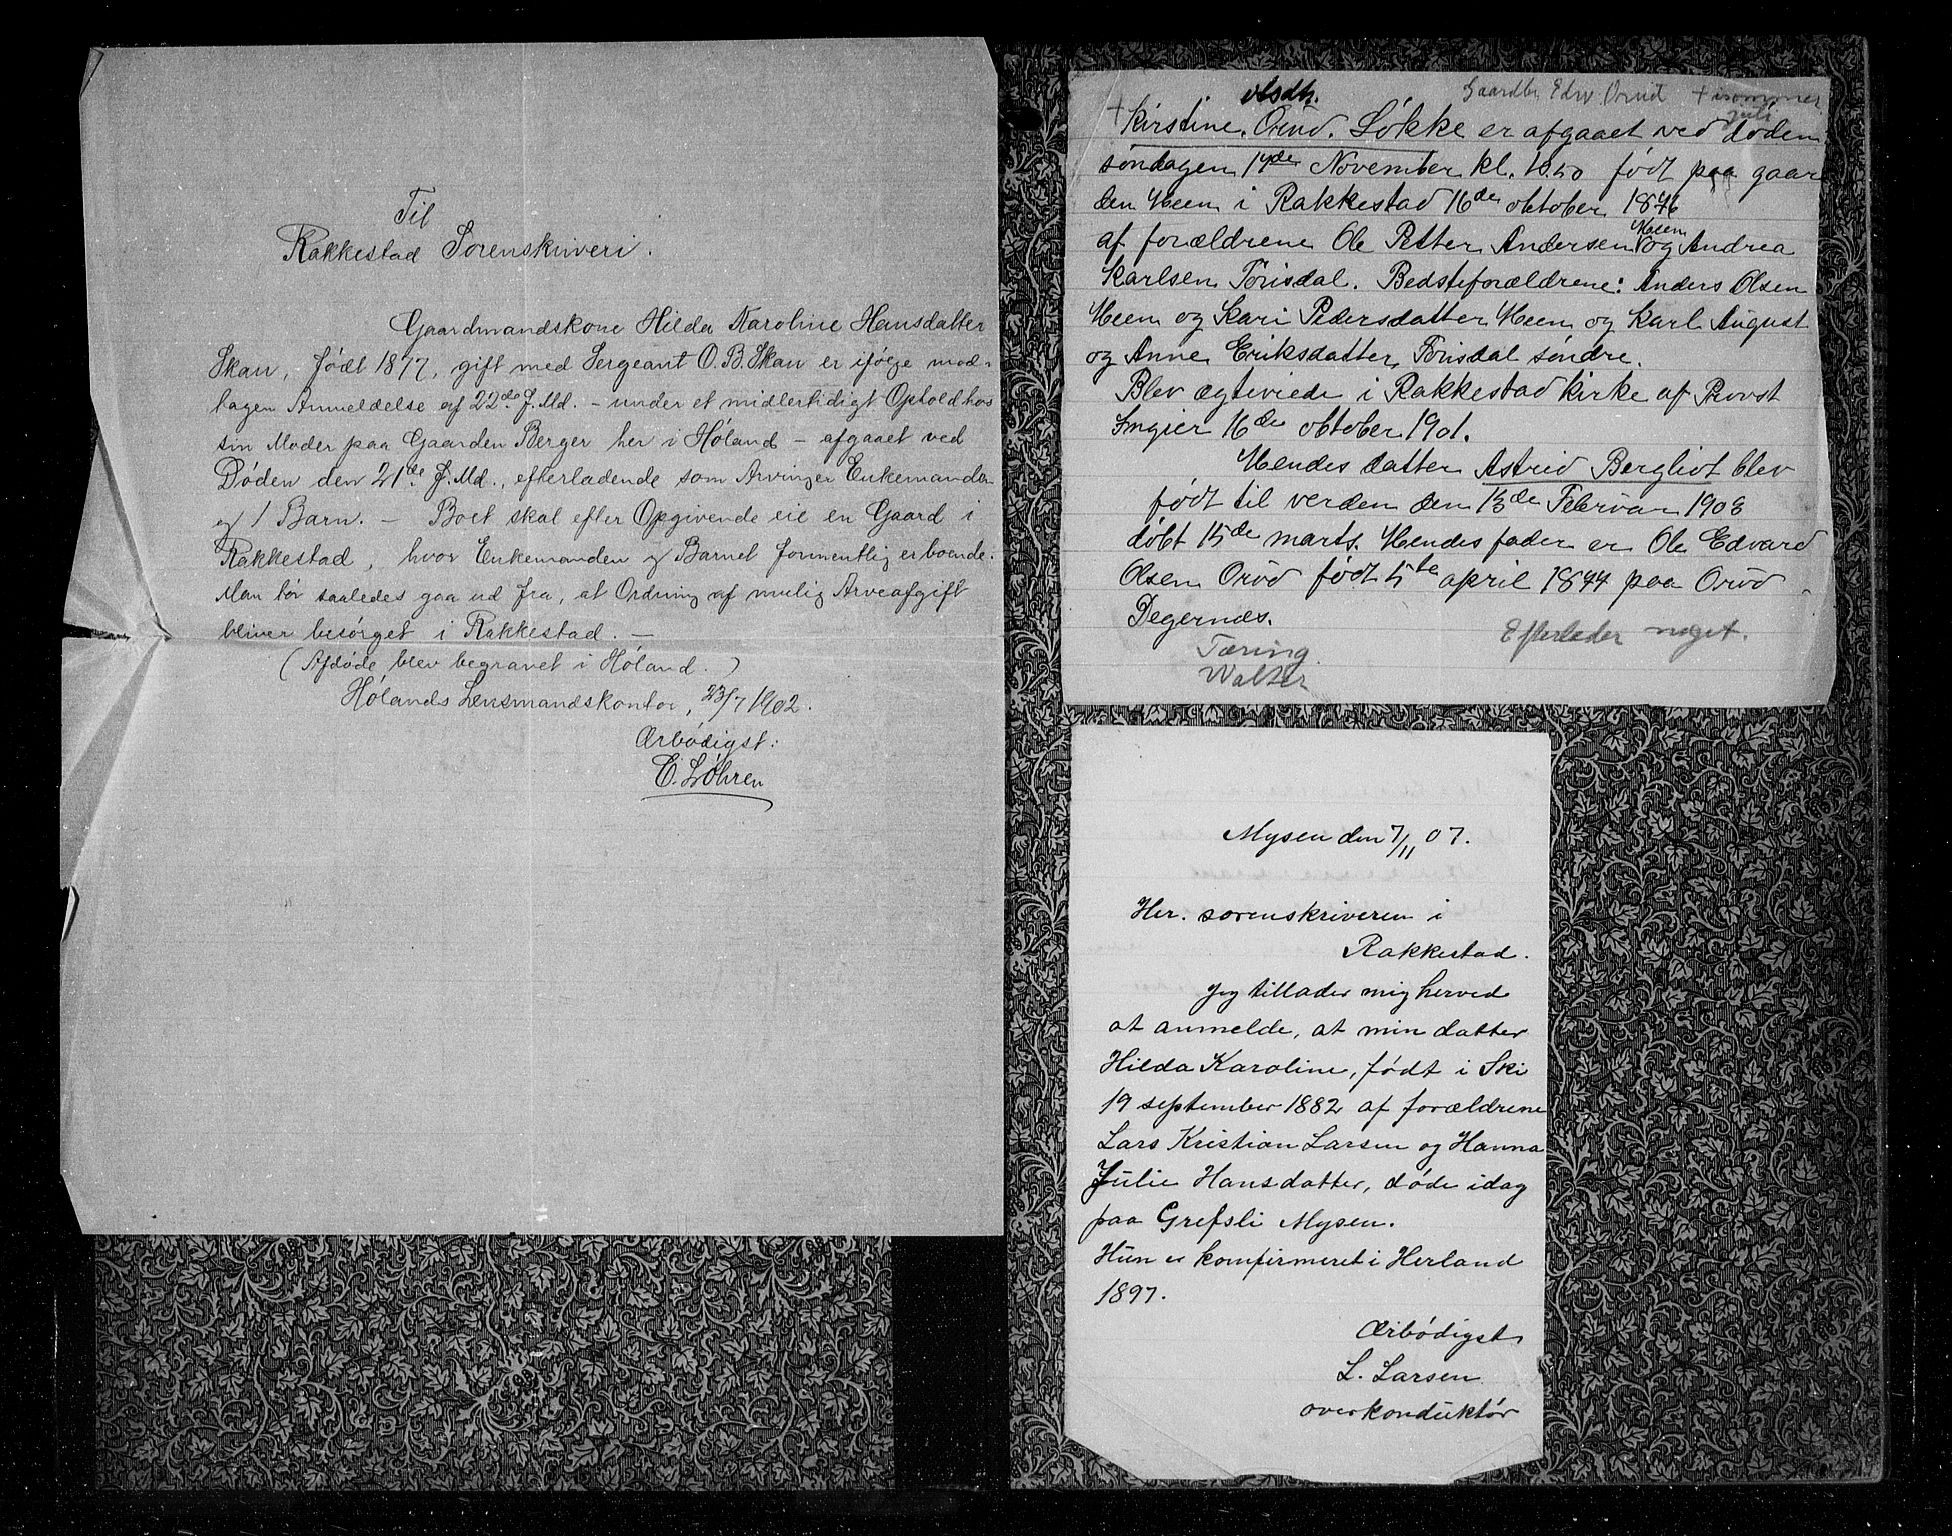 Til
Rakkestad Sorenskriveri.
Gaardmandskone Hilda Karoline Hansdatter
Skau, født 1877, gift med Sergeant O. B. Skau er ifølge mod-
tagen Anmeldelse af 22de d. Md. – under et midlertidigt Ophold hos
sin Moder paa Gaarden Berger her i Høland – afgaaet ved
Døden den 21de d. Md., efterladende som Arvinger Enkemanden
og 1 Barn. – Boet skal efter Opgivende eie en Gaard i
Rakkestad, hvor Enkemanden og Barnet formentlig er boende.
Man tør saaledes gaa ud fra, at Ordning af mulig Arveafgift
bliver besørget i Rakkestad. –
(Afdøde blev begravet i Høland.)
Hølands Lensmandskontor, 23/7 1902.
Ærbødigst:
E. Løhren
Gaardbr Edv. Orud + isommer
Juli
olsdtr.
+ Kirstine. Orud. Løkke er afgaaet ved døden
søndagen 14de November kl. 10.50 født paa gaar
den Heen i Rakkestad 16de oktober 1876
Heen
af forældrene Ole Petter Andersen og Andrea
Karlsen Torisdal. Bedsteforældrene: Anders Olsen
Heen og Kari Pedersdatter Heen og Karl August
og Anne Eriksdatter, Torisdal søndre.
Blev ægteviede i Rakkestad kirke af Provst
16de oktober 1901.
Hendes datter Astrid Bergliot blev
født til verden den 13de Februar 1903
døbt 15de marts. Hendes fader er Ole Edvard
Olsen Orud født 5te april 1844 paa Orud
Degernæs.
Efterlader noget.
Tæring
Walter
Mysen den 7/11 07.
Her. sorenskriveren i
Rakkestad.
Jeg tillader mig herved
at anmelde, at min datter
Hilda Karoline, født i Ski
19 september 1882 af forældrene
Lars Kristian Larsen og Hanna
Julie Hansdatter, døde idag
paa Grefsli Mysen.
Hun er konfirmeret i Herland
1897.
Ærbødigst
L. Larsen
overkonduktør